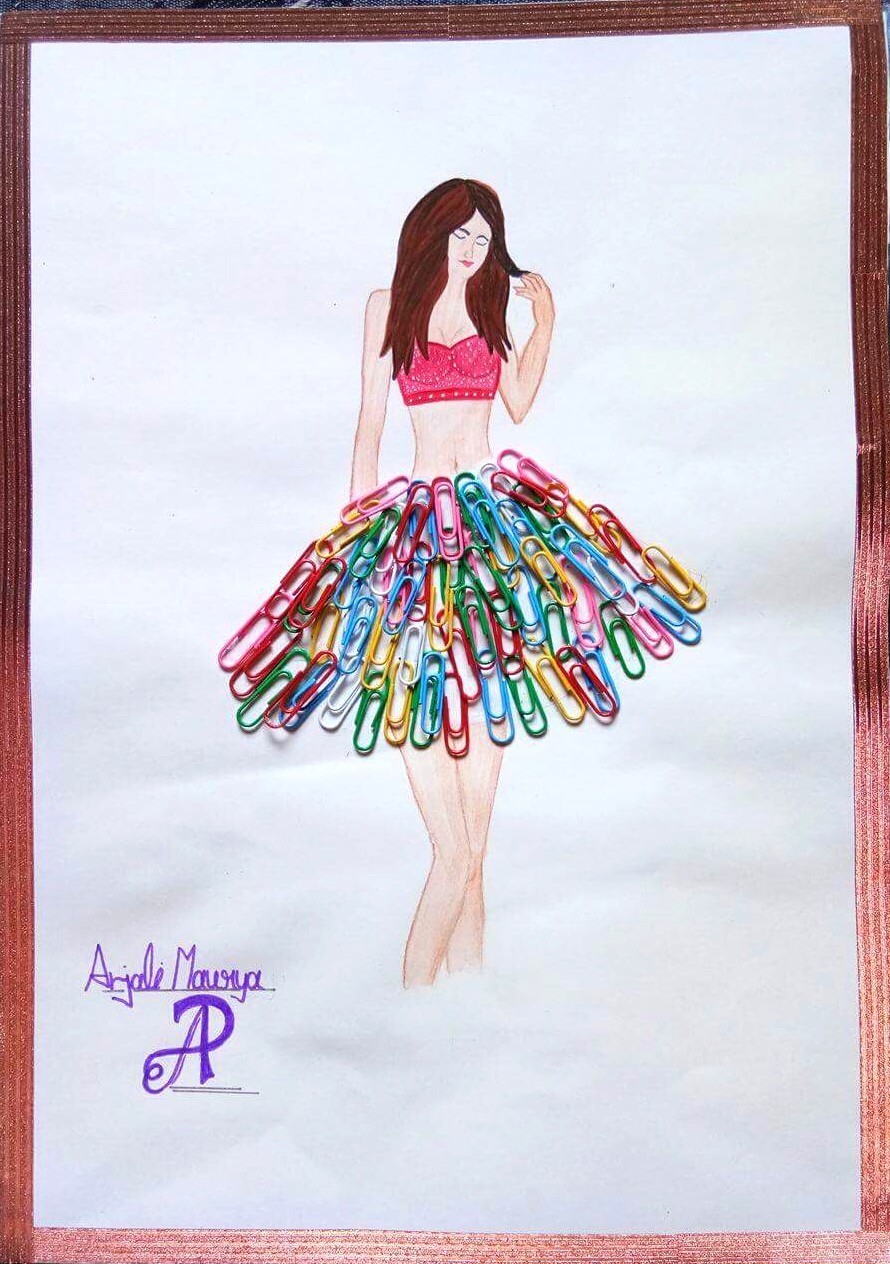 Anjali Maurya
AP